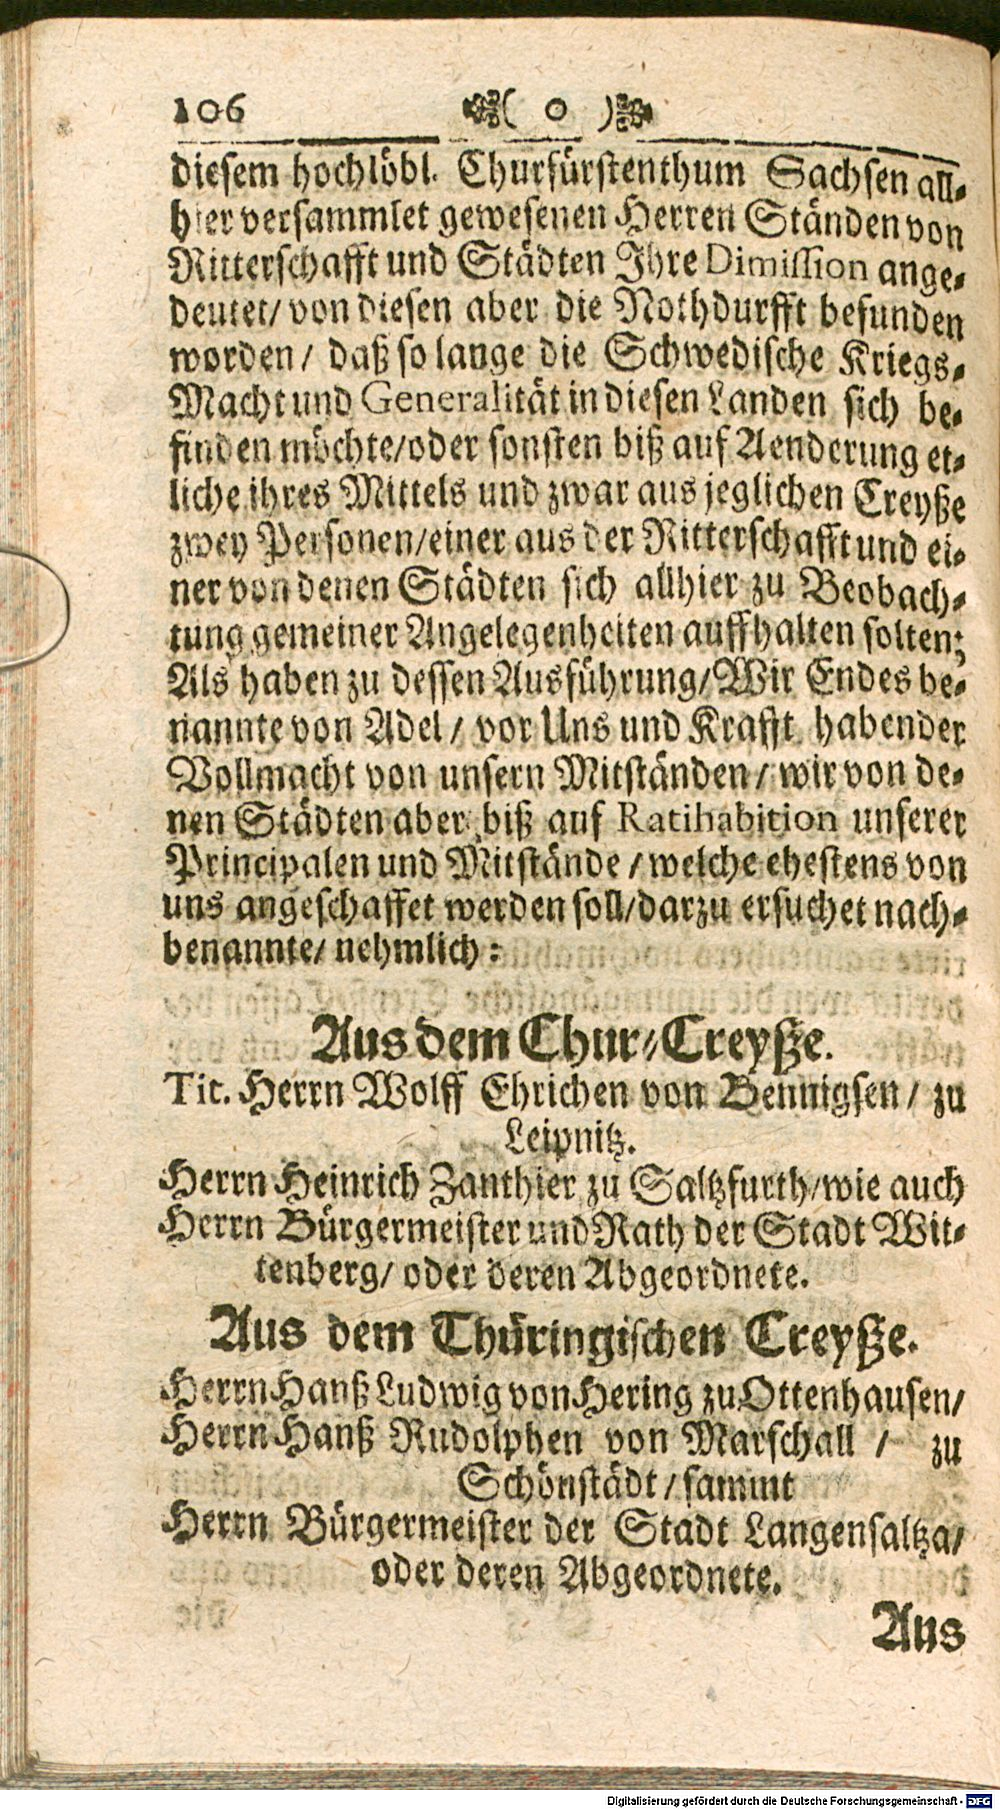 106 ( o )
diesem hochlöbl. Churfürstenthum Sachsen all-
hier versammlet gewesenen Herren Ständen von
Ritterschafft und Städten Ihre Dimission ange-
deutet/ von diesen aber die Nothdurfft befunden
worden/ daß so lange die Schwedische Kriegs-
Macht und Generalität in diesen Landen sich be-
finden möchte/oder sonsten biß auf Aenderung et-
liche ihres Mittels und zwar aus jeglichen Creyße
zwey Personen/einer aus der Ritterschafft und ei-
ner von denen Städten sich allhier zu Beobach-
tung gemeiner Angelegenheiten auffhalten solten;
Als haben zu dessen Ausführung/Wir Endes be-
nannte von Adel / vor Uns und Krafft habender
Vollmacht von unsern Mitständen/ wir von de-
nen Städten aber biß auf Ratihabition unserer
Principalen und Mitstände / welche ehestens von
uns angeschaffet werden soll/darzu ersuchet nach-
benannte/ nehmlich:
Aus dem Chur-Creyße.
Tit. Herrn Wolff Ehrichen von Bennigsen / zu
Leipnitz.
Herrn Heinrich Zanthier zu Saltzfurth/wie auch
Herrn Bürgermeister und Rath der Stadt Wit-
tenberg/ oder deren Abgeordnete.
Aus dem Thüringischen Creyße.
Herrn Hanß Ludwig von Hering zu Ottenhausen/
Herrn Hanß Rudolphen von Marschall / zu
Schönstädt / sammt
Herrn Bürgermeister der Stadt Langensaltza/
oder deren Abgeordnete.
Aus
Digitalisierung gefördert durch die Deutsche Forschungsgemeinschaft - DFG